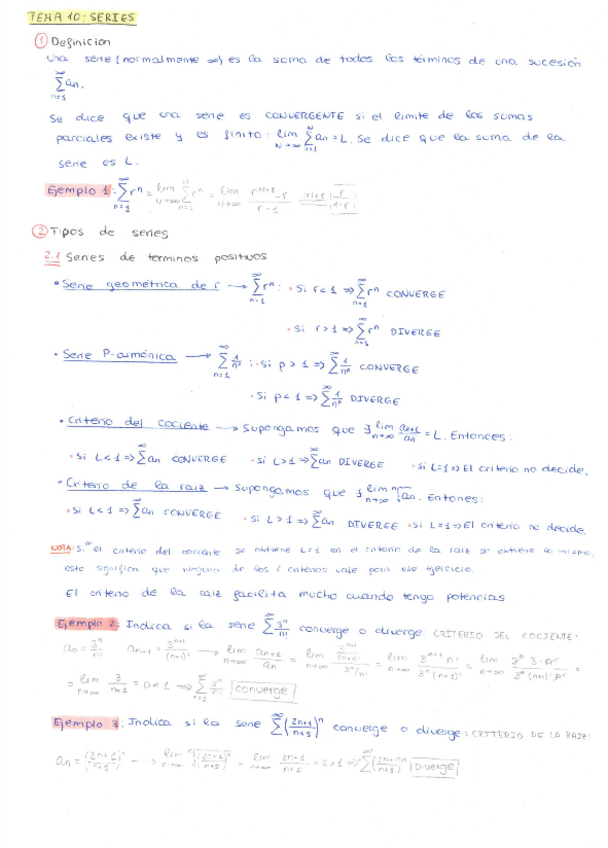 TEMA 10: SERIES
① Definición
una serie (normalmente ∞) es la suma de todos los términos de una sucesión
∞ Σ n=1 an.
Se dice que una serie es CONVERGENTE si el límite de las sumas
parciales existe y es finito: lim N→∞ N Σ n=1 an = L. Se dice que la suma de la
serie es L.
Ejemplo 1: ∞ Σ n=1 rⁿ = lim N→∞ N Σ n=1 rⁿ = lim N→∞ (r^(N+1) - r)/(r - 1) = r/(1-r)
② Tipos de series
2.1 Series de términos positivos
• Serie geométrica de r → ∞ Σ n=1 rⁿ: • Si r < 1 ⇒ ∞ Σ n=1 rⁿ CONVERGE
• Si r > 1 ⇒ ∞ Σ n=1 rⁿ DIVERGE
• Serie P-armónica → ∞ Σ n=1 1/nᵖ: • Si p > 1 ⇒ ∞ Σ 1/nᵖ CONVERGE
• Si p < 1 ⇒ ∞ Σ 1/nᵖ DIVERGE
• Criterio del cociente → Supongamos que ∃ lim n→∞ an+1/an = L. Entonces:
• Si L < 1 ⇒ ∞ Σ an CONVERGE • Si L > 1 ⇒ ∞ Σ an DIVERGE • Si L=1 ⇒ El criterio no decide.
• Criterio de la raíz → Supongamos que ∃ lim n→∞ ⁿ√an. Entones:
• Si L < 1 ⇒ ∞ Σ an CONVERGE • Si L > 1 ⇒ ∞ Σ an DIVERGE • Si L=1 ⇒ El criterio no decide.
NOTA: Si el criterio del cociente se obtiene L=1 en el criterio de la raíz se obtiene lo mismo,
esto significa que ninguno de los 2 criterios vale para ese ejercicio.
El criterio de la raíz facilita mucho cuando tengo potencias
Ejemplo 2: Indica si la serie ∞ Σ 3ⁿ/n! converge o diverge: CRITERIO DEL COCIENTE:
an = 3ⁿ/n! an+1 = 3ⁿ⁺¹/(n+1)! → lim n→∞ an+1/an = lim n→∞ (3ⁿ⁺¹/(n+1)!)/(3ⁿ/n!) = lim n→∞ 3ⁿ⁺¹ n!/3ⁿ (n+1)! = lim n→∞ 3ⁿ · 3 · n!/3ⁿ (n+1) n! =
= lim n→∞ 3/(n+1) = 0 < 1 ⇒ ∞ Σ 3ⁿ/n! converge
Ejemplo 3: Indica si la serie ∞ Σ ((2n+1)/(n+5))ⁿ converge o diverge: CRITERIO DE LA RAIZ:
an = ((2n+1)/(n+5))ⁿ → lim n→∞ ⁿ√((2n+1)/(n+5))ⁿ = lim n→∞ (2n+1)/(n+5) = 2 > 1 ⇒ ∞ Σ ((2n+1)/(n+5))ⁿ Diverge